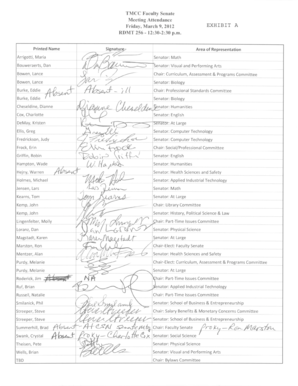 TMCC Faculty Senate
Meeting Attendance
Friday, March 9, 2012
EXHIBIT A
RDMT 256 - 12:30-2:30 p.m.
Printed Name Signature: Area of Representation
Arrigotti, Maria Senator: Math
Bouweraerts, Dan Senator: Visual and Performing Arts
Bowen, Lance Chair: Curriculum, Assessment & Programs Committee
Bowen, Lance Senator: Biology
Burke, Eddie Absent Absent - ill Chair: Professional Standards Committee
Burke, Eddie Senator: Biology
Senator: Humanities
Cox, Charlotte Senator: English
Senator: At Large
Ellis, Greg Senator: Computer Technology
Fredriksen, Judy Senator: Computer Technology
Frank, Erin Chair: Social/Professional Committee
Griffin, Robin Senator: English
Hampton, Wade Senator: Humanities
Absent Senator: Health Sciences and Safety
Holmes, Michael Senator: Applied Industrial Technology
Jensen, Lars Senator: Math
Kearns, Terri Senator: At Large
Kemp, John Chair: Library Committee
Kemp, John Senator: History, Political Science & Law
Lingenfelter, Marty Chair: Part Time Issues Committee
Loranz, Dan Senator: Physical Science
Magstadt, Karen Senator: At Large
Marston, Ron Chair-Elect: Faculty Senate
Senator: Health Sciences and Safety
Purdy, Melanie Chair-Elect: Curriculum, Assessment & Programs Committee
Purdy, Melanie Senator: At Large
NA Chair: Part-Time Issues Committee
Ruf, Brian Senator: Applied Industrial Technology
Russell, Natalie Chair: Part Time Issues Committee
Senator: School of Business & Entrepreneurship
Streeper, Steve Chair: Salary Benefits & Monetary Concerns Committee
Streeper, Steve Senator: School of Business & Entrepreneurship
Summerhill, Brad Absent Chair: Faculty Senate Proxy - Ron Marston
Swank, Crystal Absent Proxy - Charlotte Cox Senator: Social Science
Thiesen, Pete Senator: Physical Science
Wells, Brian Senator: Visual and Performing Arts
TBD Chair: Bylaws Committee